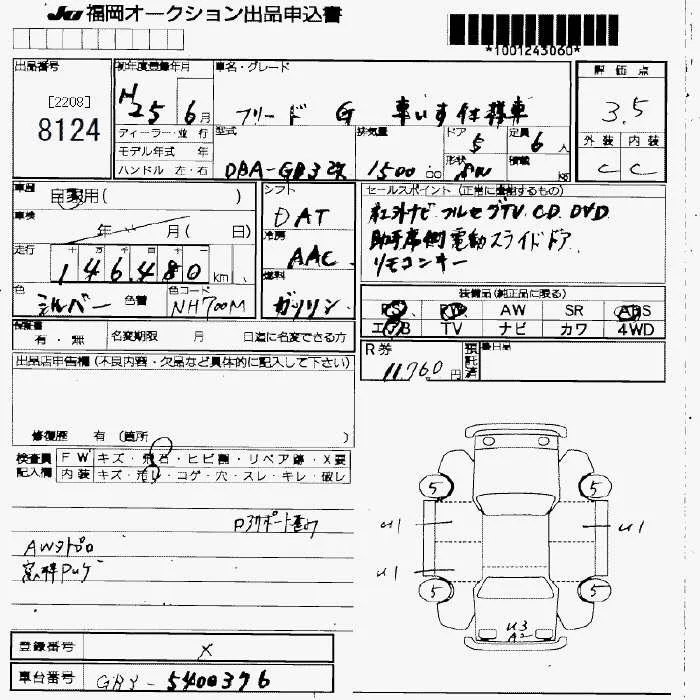 JU 福岡オークション出品申込書
*1001243060*
出品番号
[2208]
8124
初年度登録年月
H25 6月
車名・グレード
フリード G 車いす仕様車
評価点
3.5
外装 内装
C C
ディーラー・並行
モデル年式 年
ハンドル 左・右
型式
DBA-GB3改
排気量
1500 cc
ドア
5
形状
定員
6人
積載
kg
車歴
自家用( )
車検
年 月( 日)
走行
146,480 km
色
シルバー
色替
色コード
NH700M
シフト
DAT
冷房
AAC
燃料
ガソリン
セールスポイント(正常に機能するもの)
純正ナビ フルセグTV CD DVD
助手席側電動スライドドア
リモコンキー
装備品(純正品に限る)
PS PW AW SR ABS
エアB TV ナビ カワ 4WD
保証書
有・無
名変期限 月 日迄に名変できる方
R券
11,760円
預託済
備日品
出品店申告欄(不良内容・欠品など具体的に記入して下さい)
修復歴 有(箇所 )
検査員記入欄
FW キズ・飛石・ヒビ割・リペア跡・X要
内装 キズ・汚レ・コゲ・穴・スレ・キレ・破レ
AWヌトプロ
登録番号
X
車台番号
GB3-5400376
5
5
5
5
U1
U1
U1
U3
A2